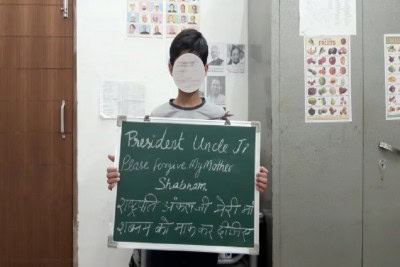 President Uncle Ji
Please forgive My Mother
Shabnam
राष्ट्रपति अंकल जी मेरी माँ
शबनम को माफ़ कर दीजिए
FRUITS